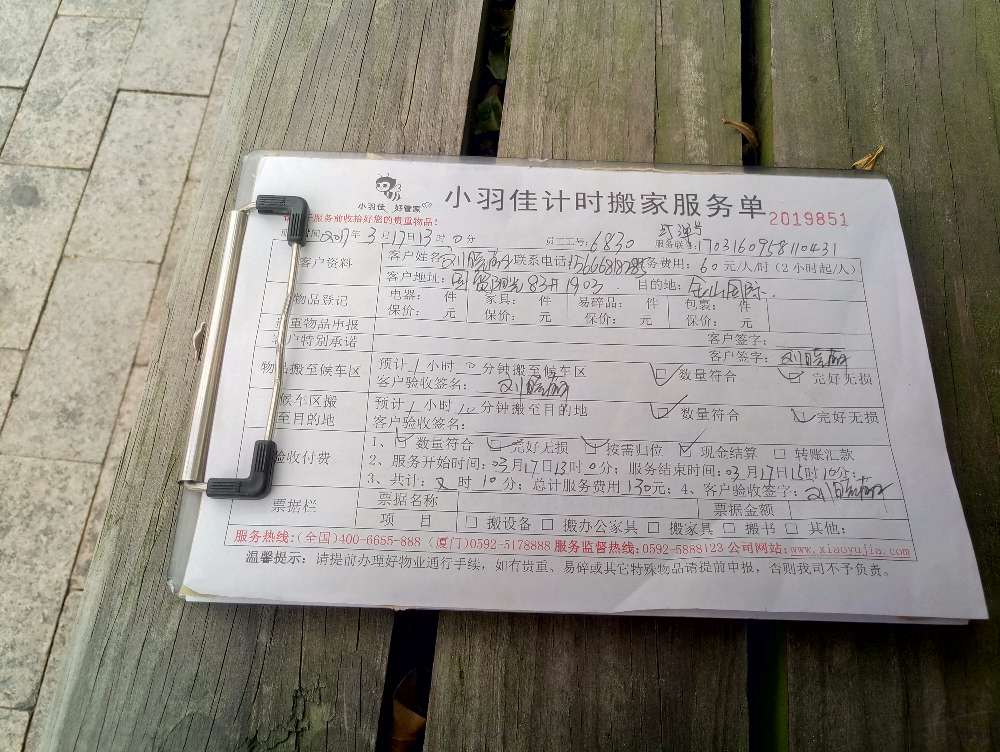 小羽佳 好管家
小羽佳计时搬家服务单 2019851
服务前收拾好您的贵重物品!
2017年3月17日13时0分 员工工号:6830 服务联单:1703160958110431
客户资料 客户姓名: 联系电话 服务费用:60元/人/时(2小时起/人)
客户地址:国贸阳光83#1903 目的地:金山国际
物品登记 电器: 件 家具: 件 易碎品: 件 包裹: 件
保价: 元 保价: 元 保价: 元 保价: 元
贵重物品申报 客户签字:
客户特别承诺 客户签字:
物品搬至候车区 预计1小时0分钟搬至候车区 数量符合 完好无损
客户验收签名:
候车区搬至目的地 预计1小时10分钟搬至目的地 数量符合 完好无损
客户验收签名:
验收付费 1、数量符合 完好无损 按需归位 现金结算 转账汇款
2、服务开始时间:03月17日13时0分; 服务结束时间:03月17日15时10分;
3、共计:2时10分; 总计服务费用130元; 4、客户验收签字:
票据栏 票据名称 票据金额
项 目 搬设备 搬办公家具 搬家具 搬书 其他:
服务热线:(全国)400-6655-888 (厦门)0592-5178888 服务监督热线:0592-5868123 公司网站:www.xiaoyujia.com
温馨提示: 请提前办理好物业通行手续,如有贵重、易碎或其它特殊物品请提前申报,否则我司不予负责。